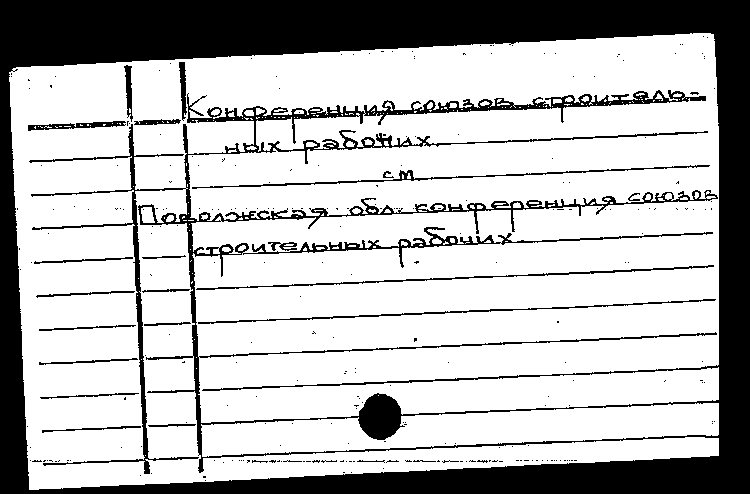 Конференция союзов строитель-
ных рабочих
см
Поволжская обл. конференция союзов
строительных рабочих.